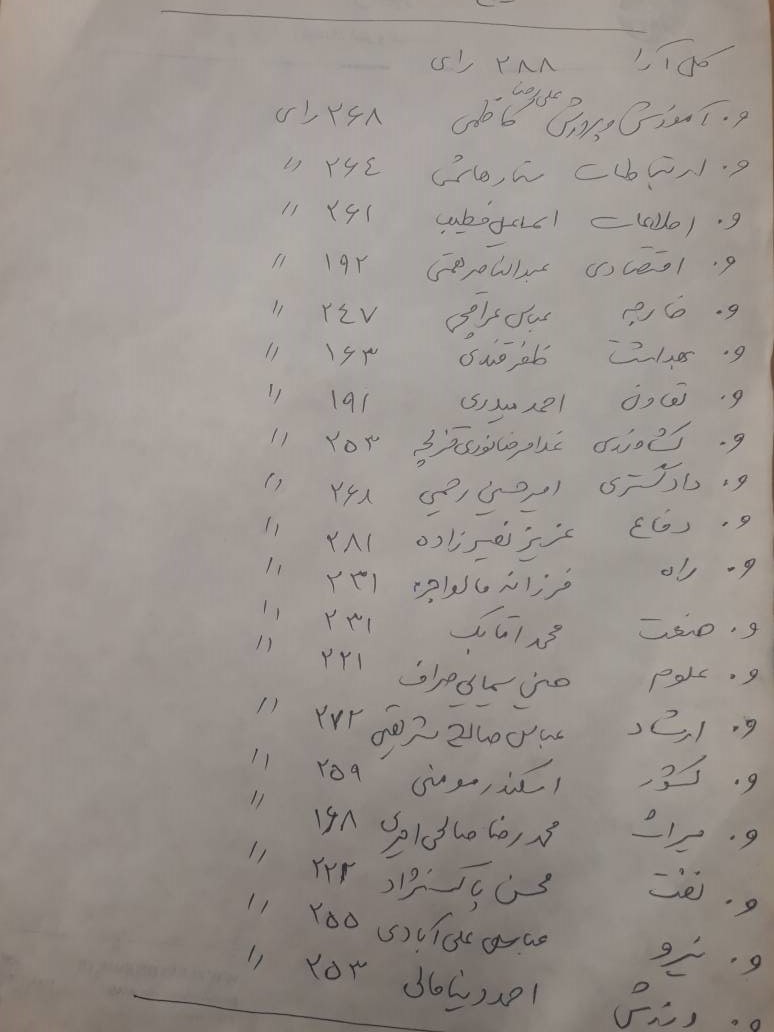 کل آرا ۲۸۸ رای
و. آموزش و پرورش علیرضا کاظمی ۲۶۸ رای
و. ارتباطات ستار هاشمی ۲۶٤ //
و. اطلاعات اسماعیل خطیب ۲۶۱ //
و. اقتصادی عبدالناصر همتی ۱۹۲ //
و. خارجه عباس عراقچی ۲٤۷ //
و. بهداشت ظفرقندی ۱۶۳ //
و. تعاون احمد میدری ۱۹۱ //
و. کشاورزی غلامرضا نوری قزلجه ۲۵۳ //
و. دادگستری امیرحسین رحیمی ۲۶۸ //
و. دفاع عزیز نصیرزاده ۲۸۱ //
و. راه فرزانه صادق مالواجرد ۲۳۱ //
و. صنعت محمد اتابک ۲۳۱ //
و. علوم حسین سیمایی صراف ۲۲۱ //
و. ارشاد عباس صالحی شریعتی ۲۷۲ //
و. کشور اسکندر مومنی ۲۵۹ //
و. میراث محمدرضا صالحی امیری ۱۶۸ //
و. نفت محسن پاکنژاد ۲۲۲ //
و. نیرو عباس علی آبادی ۲۵۵ //
و. ورزش احمد دنیامالی ۲۵۳ //